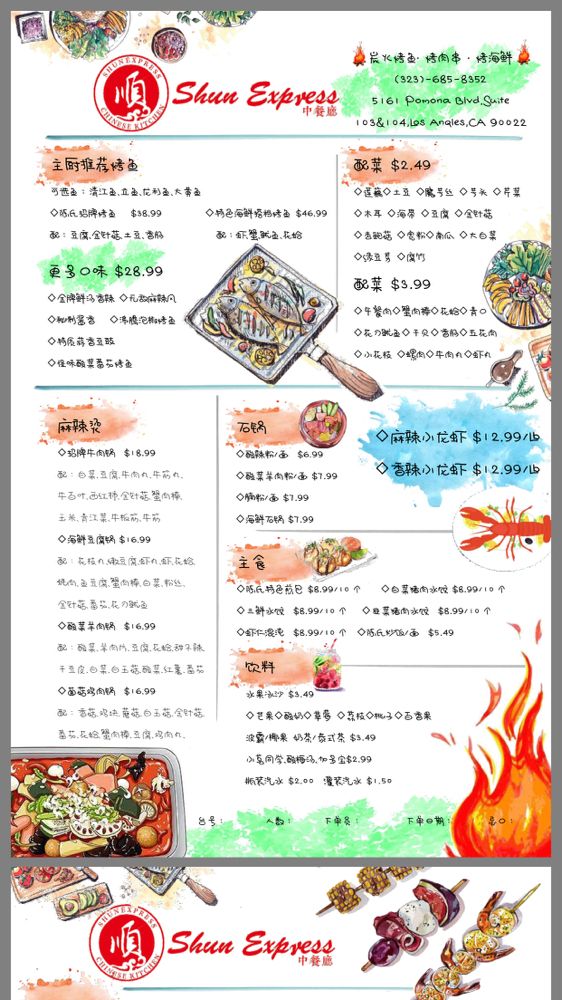 SHUNEXPRESS
順
CHINESE KITCHEN
Shun Express
中餐廳
炭火烤鱼·烤肉串·烤海鲜
(323)-685-8352
5161 Pomona Blvd,Suite
103&104,Los Angles,CA 90022
主厨推荐烤鱼
可选鱼：清江鱼,立鱼,龙利鱼,大黄鱼
◇陈氏招牌烤鱼 $38.99
◇特色海鲜塔档烤鱼 $46.99
配：豆腐,金针菇,土豆,香肠
配：虾,蟹,鱿鱼,花蛤
更多口味 $28.99
◇金牌鲜汤香辣
◇秘制酱香 ◇沸腾泡椒烤鱼
◇特底蒜香豆豉
◇怪味酸菜番茄烤鱼
配菜 $2.49
◇莲藕◇土豆 ◇魔芋丝 ◇芋头 ◇芹菜
◇木耳 ◇海带 ◇豆腐 ◇金针菇
◇杏鲍菇 ◇宽粉◇南瓜 ◇大白菜
◇绿豆芽 ◇腐竹
配菜 $3.99
◇牛蟹肉◇蟹肉棒◇花蛤◇青口
◇花刀鱿鱼◇干贝◇香肠◇五花肉
◇小花枝 ◇螺肉◇牛肉丸◇虾丸
麻辣烫
◇招牌牛肉锅 $18.99
配：白菜,豆腐,牛肉丸,牛筋丸,
牛百叶,西红柿,金针菇,蟹肉棒,
玉米,青江菜,牛板筋,牛筋
◇海鲜豆腐锅 $16.99
配：花枝丸,嫩豆腐,虾丸,虾,花蛤
烧肉,鱼豆腐,蟹肉棒,白菜,粉丝,
金针菇,番茄,花刀鱿鱼
◇酸菜羊肉锅 $16.99
配：酸菜,羊肉片,豆腐,花蛤,甜不辣,
干豆皮,白菜,白玉菇,酸菜,红薯,番茄
◇菌菇鸡肉锅 $16.99
配：香菇,鸡块,蘑菇,白玉菇,金针菇,
番茄,花蛤,蟹肉棒,豆腐,鸡肉丸,
石锅
◇酸辣粉/面 $6.99
◇酸菜羊肉粉/面 $7.99
◇腩粉/面 $7.99
◇海鲜石锅 $7.99
◇麻辣小龙虾 $12.99/lb
◇香辣小龙虾 $12.99/lb
主食
◇陈氏特色煎包 $8.99/10个 ◇白菜猪肉水饺 $8.99/10个
◇三鲜水饺 $8.99/10个 ◇韭菜猪肉水饺 $8.99/10个
◇虾仁混沌 $8.99/10个 ◇陈氏炒饭/面 $5.49
饮料
水果冰沙 $3.49
◇芒果◇酸奶◇草莓 ◇荔枝◇桃子◇百香果
波霸/椰果 奶茶/泰式茶 $3.49
小茗同学,酸梅汤,加多宝$2.99
瓶装汽水 $2.00 灌装汽水 $1.50
台号： 人数： 下单员： 下单日期：
SHUNEXPRESS
順
CHINESE KITCHEN
Shun Express
中餐廳